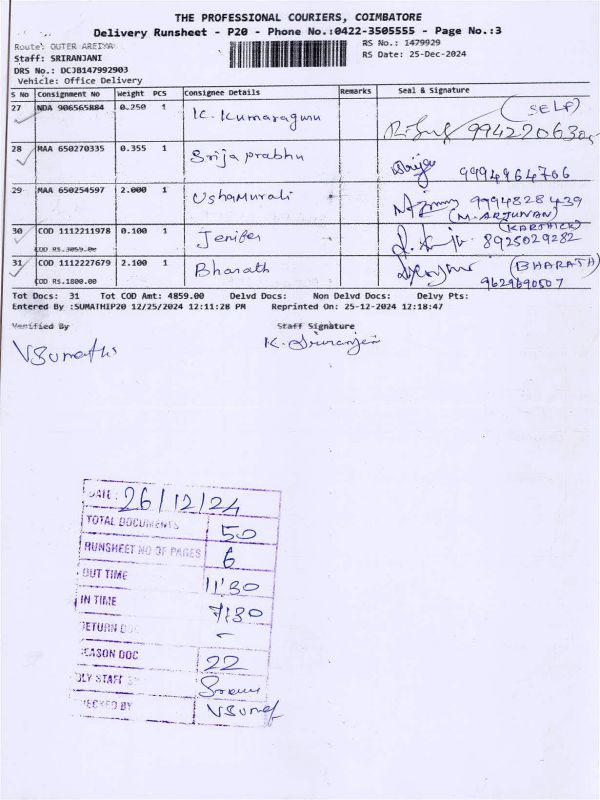 THE PROFESSIONAL COURIERS, COIMBATORE
Delivery Runsheet - P20 - Phone No.:0422-3505555 - Page No.:3
Route: OUTER AREIYA
RS No.: 1479929
Staff: SRIRANJANI
RS Date: 25-Dec-2024
DRS No.: DCJB147992903
Vehicle: Office Delivery
S No Consignment No Weight PCS Consignee Details Remarks Seal & Signature
27 NDA 906565884 0.250 1 K. Kumaraguru (SELF)
28 MAA 650270335 0.355 1 Srija prabhu 9994964706
29 MAA 650254597 2.000 1 Ushamurali 9994828439
(M. ARJUNAN)
30 COD 1112211978 0.100 1 Jenifer (KARTHICK) 8925029282
COD RS.3059.00
31 COD 1112227679 2.100 1 Bharath (BHARATH)
COD RS.1800.00 9629690507
Tot Docs: 31 Tot COD Amt: 4859.00 Delvd Docs: Non Delvd Docs: Delvy Pts:
Entered By :SUMATHIP20 12/25/2024 12:11:28 PM Reprinted On: 25-12-2024 12:18:47
Verified By Staff Signature
VSumathi K. Sriranjani
DATE: 26/12/24
TOTAL DOCUMENTS 50
RUNSHEET NO OF PAGES 6
OUT TIME 11'30
IN TIME 7'30
RETURN DOC -
REASON DOC 22
DLY STAFF
CHECKED BY VSumat